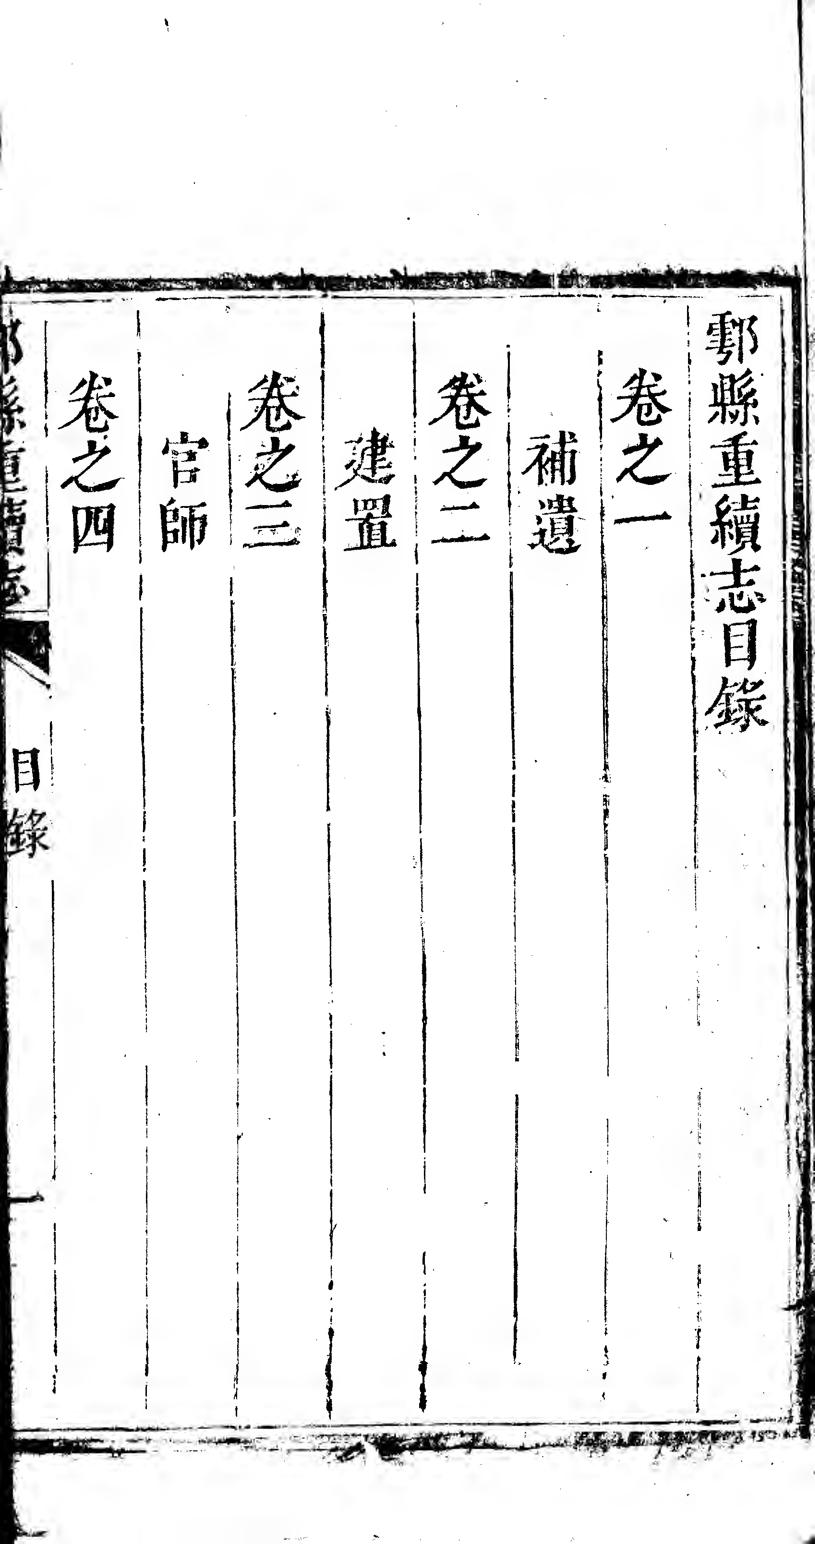 鄠縣重續志目錄
卷之一
補遺
卷之二
建置
卷之三
官師
卷之四
鄠縣重續志
目錄
一